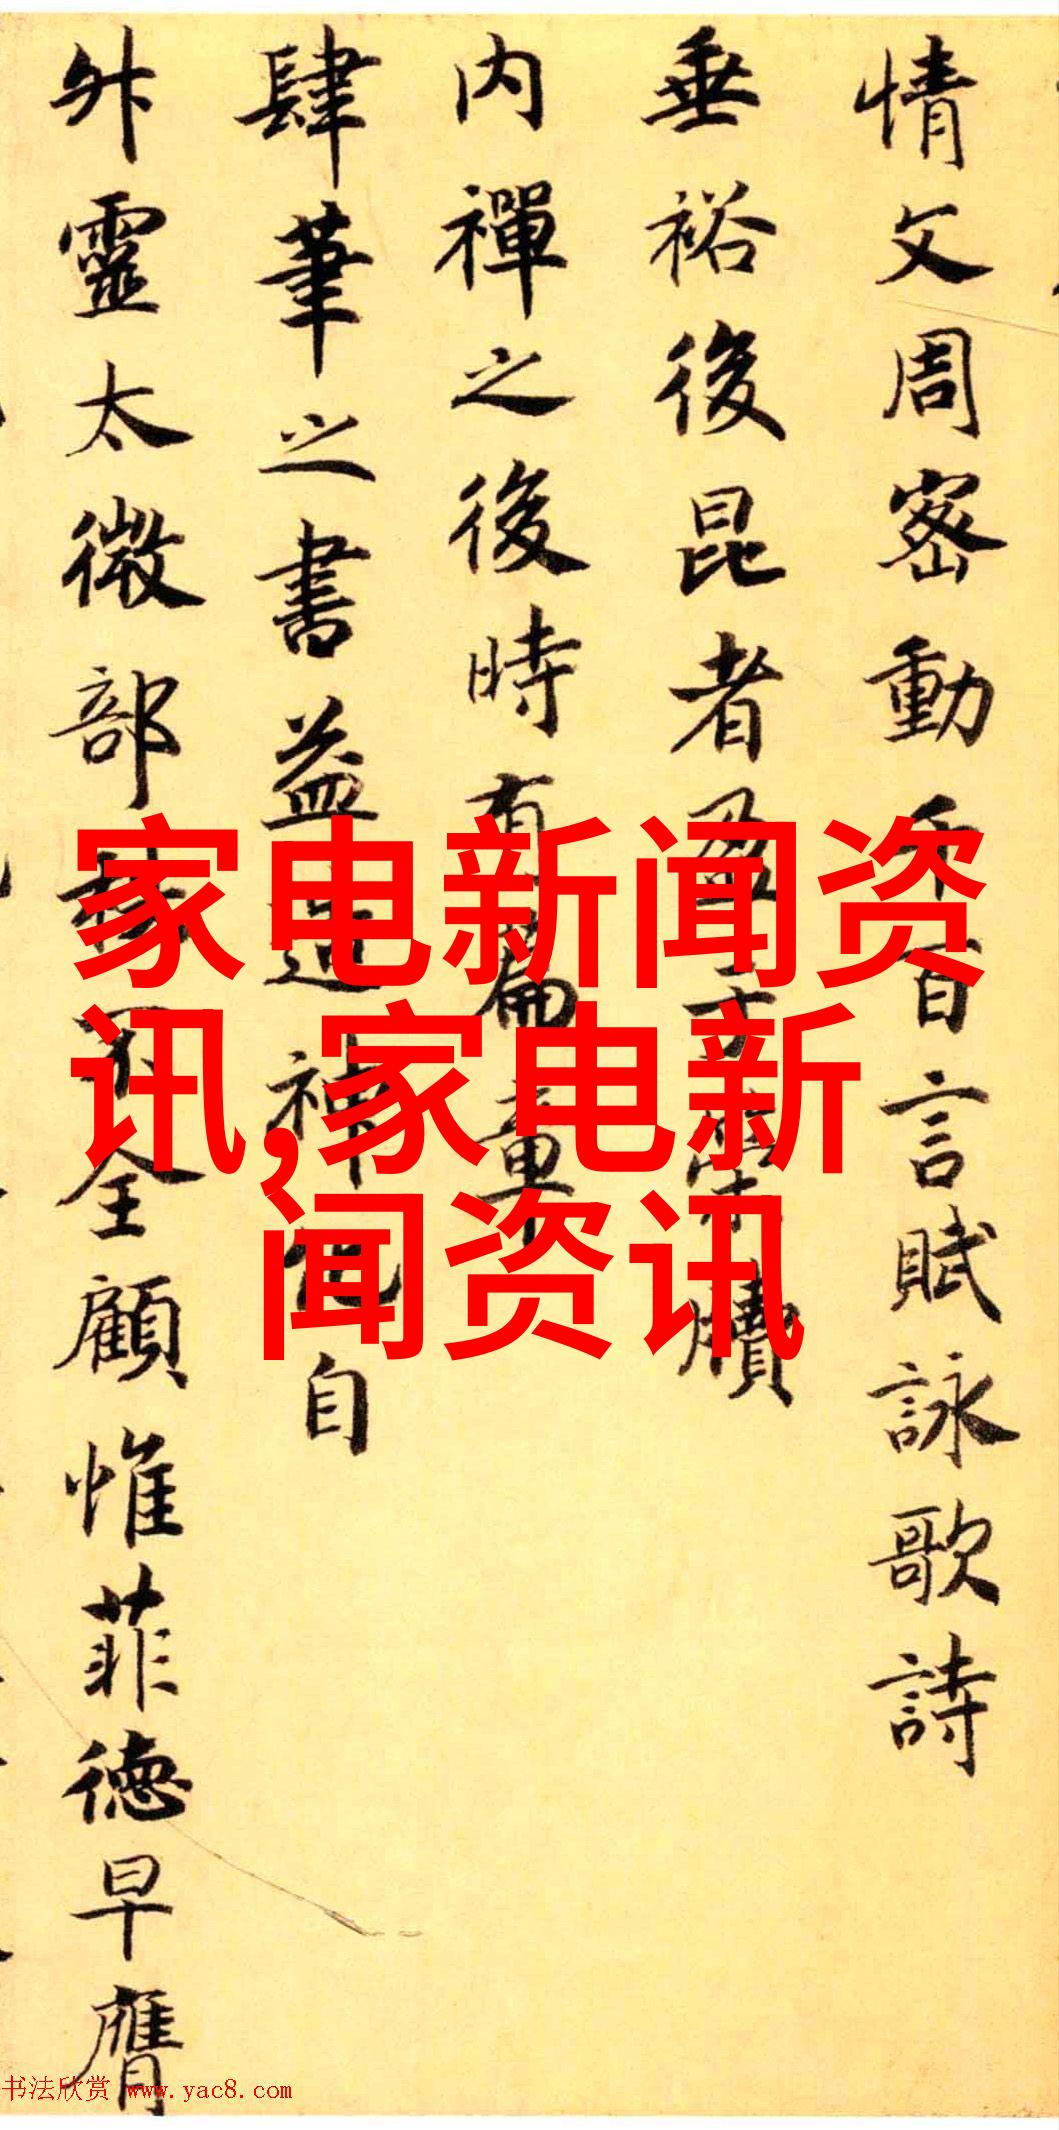 情文周密動千百言賦詠歌詩
垂裕後昆者盈于
牘
内禪之後時有篇章
肆筆之書益造神也自
外靈太微部
全顧惟菲德早膺
家电新闻资
讯,家电新
闻资讯
书法欣赏 www.yac8.com